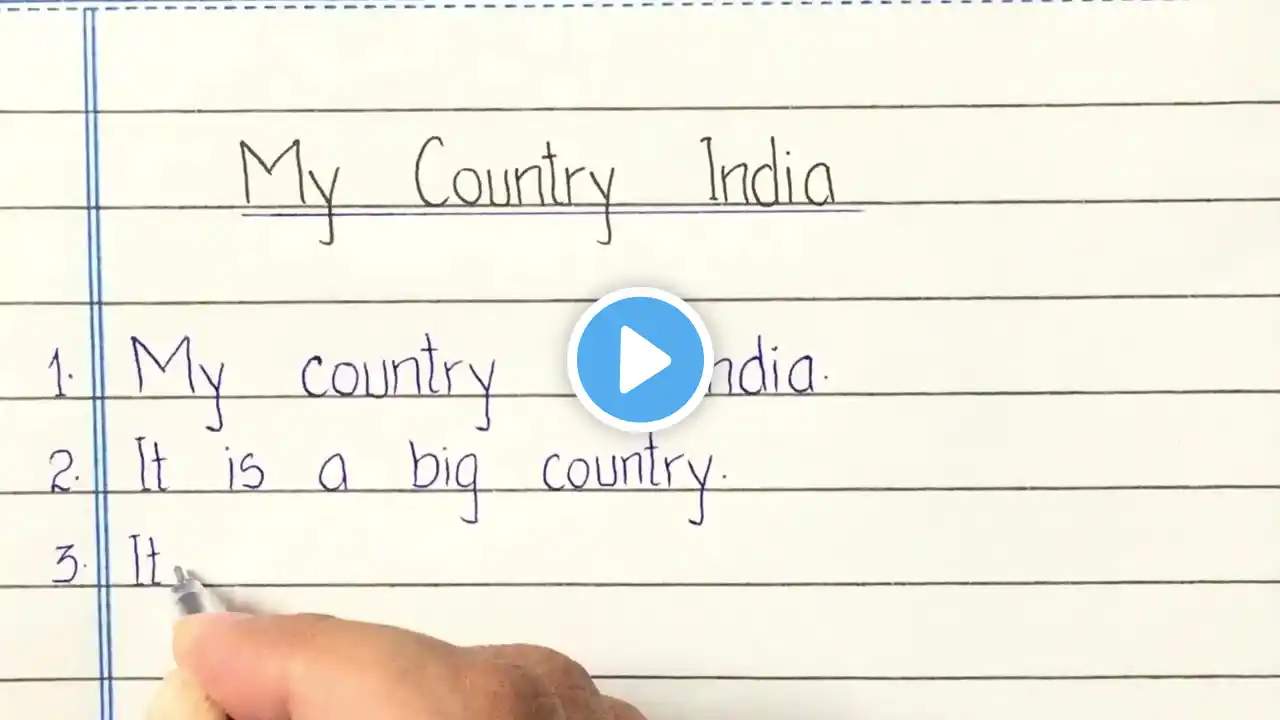 My Country India
1. My country ndia.
2. It is a big country.
3. It